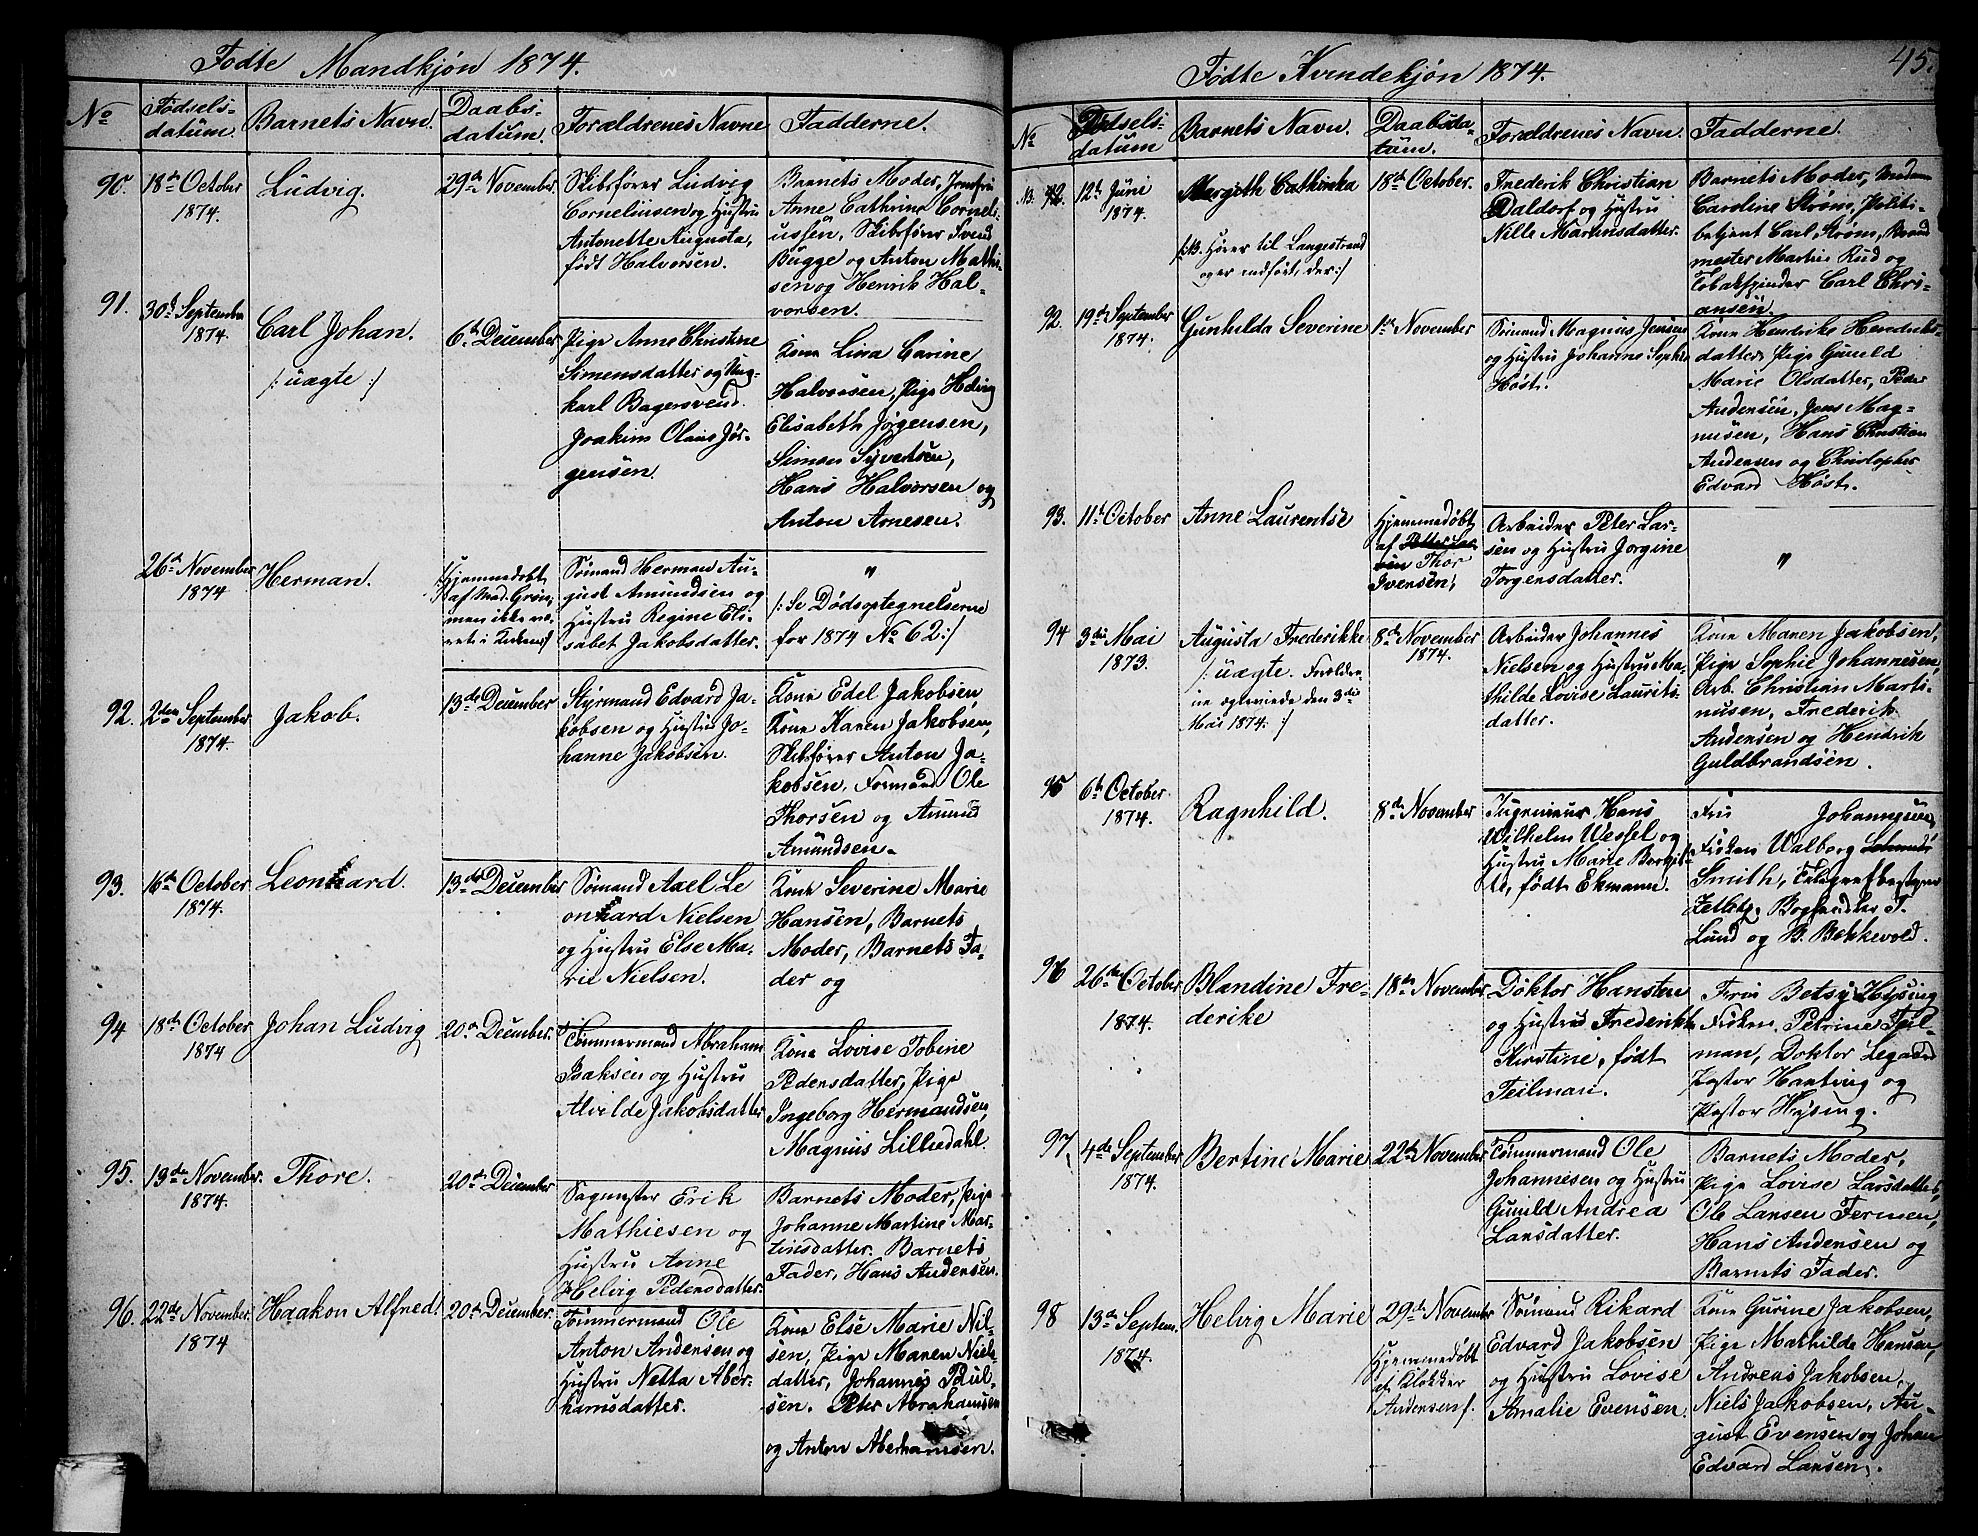 Fødte Mandkjøn 1874.
No
Fødsels-
datum.
Barnets Navn.
Daabs-
datum.
Forældrenes Navne
Fadderne.
90.
18de October
1874.
Ludvig.
29de November.
Skibsfører Ludvig
Corneliusen og Hustru
Antonette Augusta,
født Halvorsen.
Barnets Moder, Jomfru
Anne Cathrine Corneli-
ussen, Skibsfører Svend
Bugge og Anton Mathi-
sen og Henrik Hal-
vorsen.
91.
30te September
1874.
Carl Johan.
/: uægte :/
6te December
Pige Anne Christine
Simensdatter og Ung-
karl Bagersvend
Joakim Olaus Jør-
gensen.
Kone Lina Carine
Halvorsen, Pige Hedvig
Elisabeth Jørgensen,
Simon Syvertsen,
Hans Halvorsen og
Anton Arnesen.
26de November
1874
Herman.
/:Hjemmedøbt
af Mad. Grøn,
men ikke væ-
ret i Kirken:/
Sømand Herman Au-
gust Amundsen og
Hustru Regine Eli-
sabet Jakobsdatter.
"
/: Se Dødsoptegnelserne
for 1874 No 62 :/
92.
2den September
1874.
Jakob.
13de December
Styrmand Edvard Ja-
kobsen og Hustru Jo-
hanne Jakobsen.
Kone Edel Jakobsen,
Kone Karen Jakobsen,
Skibsfører Anton Ja-
kobsen, Formand Ole
Thorsen og Amund
Amundsen.
93.
16de October
1874.
Leonhard.
13de December
Sømand Axel Le
onhard Nielsen
og Hustru Else Ma-
rie Nielsen.
Kone Severine Marie
Hansen, Barnets
Moder, Barnets Fa-
der og
94
18de October
1874
Johan Ludvig
20de December.
Tømmermand Abraham
Isaksen og Hustru
Alvilde Jakobsdatter
Kone Lovise Tobine
Pedersdatter, Pige
Ingeborg Hermandsen,
Magnus Lilliedahl.
95.
19de November.
1874.
Thore.
20de December
Sagmester Erik
Mathiesen og
Hustru Anne
Helvig Pedersdatter.
Barnets Moder, Pige
Johanne Martine Mar-
tinsdatter. Barnets
Fader, Hans Andersen.
96.
22de November.
1874
Haakon Alfred.
20de December.
Tømmermand Ole
Anton Andersen og
Hustru Netta Aber-
hamsdatter.
Kone Else Marie Nil-
sen, Pige Maren Niels-
datter, Johannes Paul-
sen. Peter Abrahamsen
og Anton Aberhamsen.
Fødte Kvindekjøn 1874.
45.
No
Fødsels-
datum
Barnets Navn.
Daabsda-
tum.
Forældrenes Navn.
Fadderne.
12te Juni
1874.
Margith Cathinka
/:NB. Hører til Langestrand
og er indført, der:/
18de October.
Frederik Christian
Daldorf og Hustru
Nille Martinsdatter.
Barnets Moder, Madam
Caroline Strøm, Politi-
betjent Carl Strøm, Brand
mester Martin Rud og
Tobakspinder Carl Chris-
ansen.
92.
19de September
1874.
Gunhilda Severine
1ste November
Sømand Magnus Jensen
og Hustru Johanne Sophie
Høst.
Kone Hendrike Hendriks-
datter, Pige Gunild
Marie Olsdatter, Peder
Andersen, Jens Mag-
nusen, Hans Christian
Andersen og Christopher
Edvard Høst.
93.
11te October
Anne Laurentse
Hjemmedøbt
af Petter Lar-
sen Thor
Ivensen,
Arbeider Peter Lar-
sen og Hustru Jorgine
Torgensdatter.
"
94
3die Mai
1873.
Augusta Frederikke
/: uægte. Forældre-
ne egteviede den 3die
Mai 1874. :/
8de November
1874.
Arbeider Johannes
Nielsen og Hustru Ma-
thilde Lovise Laurits-
datter.
Kone Maren Jakobsen,
Pige Sophie Johannesen,
Arb. Christian Marti-
nusen, Frederik
Andersen og Hendrik
Guldbrandsen.
95
6te October.
1874.
Ragnhild.
8de November
Ingenieur Hans
Wilhelm Wessel og
Hustru Marie Borgit-
te, født Ekmann.
Fru Johannesen,
Frøken Walborg Schmidt
Smith, Telegrafbestyrer
Zetlitz, Boghandler T.
Lund og B. Bekkevold.
96
26de October
1874.
Blandine Fre-
derike
18de November
Doktor Hansten
og Hustru Frederikke
Kirstine, født
Teilman.
Fru Betsy Hysing
Frøken Petrine Teil-
man, Doktor Legaard
Pastor Hartvig og
Pastor Hysing.
97.
4de September
1874.
Bertine Marie
22de November
Tømmermand Ole
Johannesen og Hustru
Gunild Andrea
Larsdatter.
Barnets Moder,
Pige Lovise Larsdatter,
Ole Larsen Fermen,
Hans Andersen og
Barnets Fader.
98
13de Septem.
1874.
Helvig Marie
29de November
Hjemmedøbt
af Klokker
Andersen /.
Sømand Rikard
Edvard Jakobsen
og Hustru Lovise
Amalie Evensen.
Kone Gurine Jakobsen,
Pige Mathilde Hansen,
Andreas Jakobsen,
Niels Jakobsen, Au-
gust Evensen og Johan
Edvard Larsen.